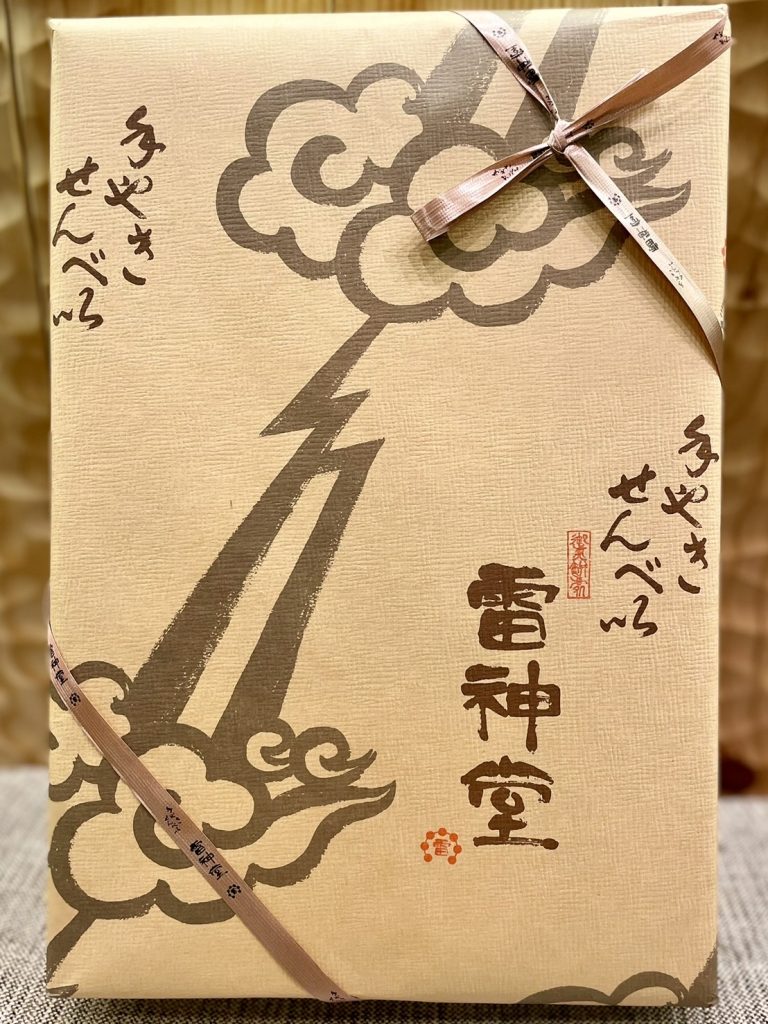 手やき
せんべい
手やき
せんべい
御煎餅所
雷神堂
雷
雷神堂
雷神堂